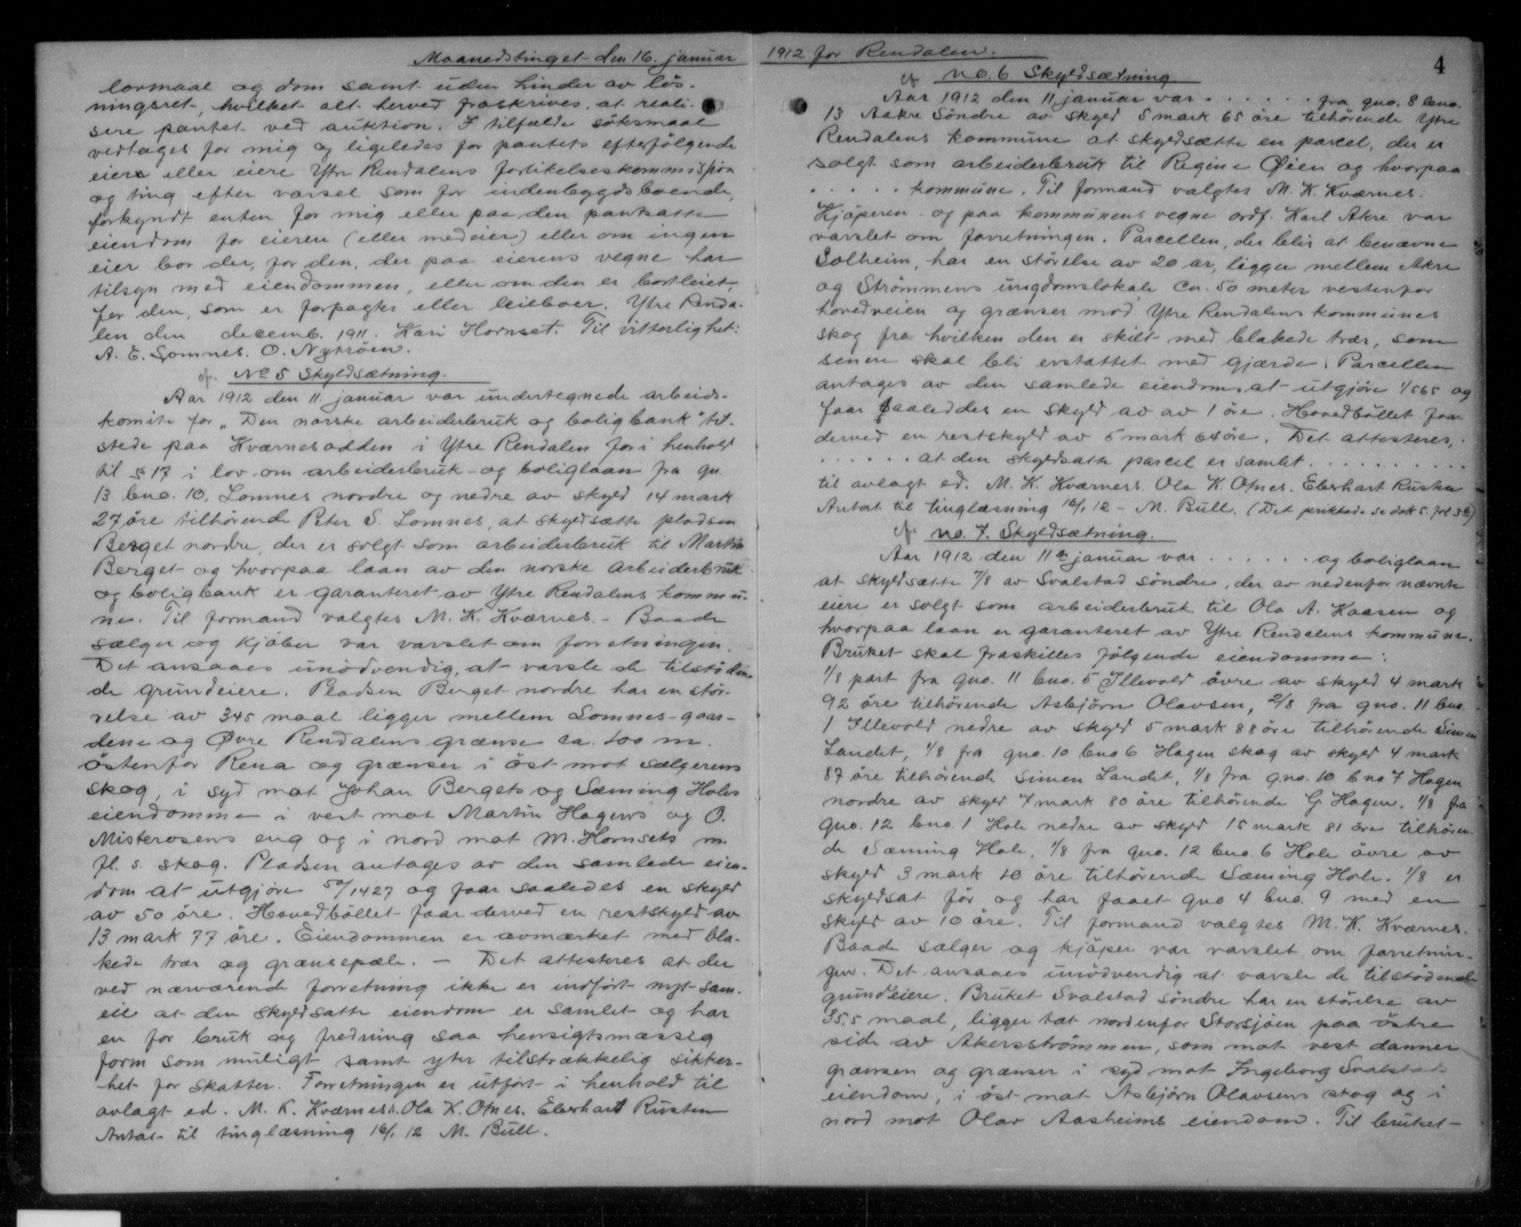 Maanedstinget den 16. januar 1912 for Rendalen.
4
lovmaal og dom samt uden hinder av lös-
ningsret, hvilket alt herved fraskrives, at reali-
sere pantet ved auktion. I tilfælde söksmaal
vedtages for mig og ligeledes for pantets efterfölgende
eiere eller eiere Ytre Rendalens forlikelseskommission
og ting efter varsel som for indenbygds boende,
forkyndt enten for mig eller paa den pantsatte
eiendom for eieren (eller medeier) eller om ingen
eier bor der, for den, der paa eierens vegne har
tilsyn med eiendommen, eller om den er bortleiet,
for den, som er forpagter eller leieboer. Ytre Renda-
len den decemb. 1911. Kari Hornset. Til vitterlighet:
A. E. Lomnes. O. Nytröen.
No 5 Skyldsætning.
Aar 1912 den 11. januar var undertegnede arbeids-
komite for "Den norske arbeiderbruk og boligbank" til-
stede paa Kværnesodden i Ytre Rendalen for i henhold
til § 17 i lov om arbeiderbruk- og boliglaan fra gn.
13 bno. 10. Lomnes nordre og nedre av skyld 14 mark
27 öre tilhörende Peter S. Lomnes, at skyldsætte pladsen
Berget nordre, der er solgt som arbeiderbruk til Martin
Berget og hvorpaa laan av den norske arbeiderbruk
og boligbank er garanteret av Ytre Rendalens kommu-
ne. Til formand valgtes M. K. Kværnes. - Baade
sælger og kjöber var varslet om forretningen.
Det ansaaes unödvendig, at varsle de tilstöden-
de grundeiere. Pladsen Berget nordre har en stör-
relse av 345 maal ligger mellem Lomnes-gaar-
dene og Øvre Rendalens grænse ca. 400 m.
östenfor Rena og grænser i öst mot sælgerens
skog, i syd mot Johan Bergets og Sæming Holes
eiendomme i vest mot Martin Hagens og O.
Misterosens eng og i nord mot M. Hornsets m.
fl. s. skog. Pladsen antages av den samlede eien-
dom at utgjöre 50/1427 og faar saaledes en skyld
av 50 öre. Hovedböllet faar derved en restskyld av
13 mark 77 öre. Eiendommen er avmærket med bla-
kede trær og grænsepæle. - Det attesteres at der
ved nærværende forretning ikke er indfört nyt sam-
eie at den skyldsatte eiendom er samlet og har
en for bruk og fredning saa hensigtsmæssig
form som muligt samt yter tilstrækkelig sikker-
het for skatter. Forretningen er utfört i henhold til
avlagt ed. M. K. Kværness. Ola K. Otnes. Eberhart Rusten
Antat til tinglæsning 16/1 12 M. Bull.
no. 6 Skyldsætning
Aar 1912 den 11 januar var . . . . . . fra gno. 8 bno.
13 Aakre Söndre av skyld 5 mark 65 öre tilhörende Ytre
Rendalens kommune at skyldsætte en parcel, der er
solgt som arbeiderbruk til Regine Øien og hvorpaa
. . . . . kommune. Til formand valgtes M. K. Kværnes.
Kjöperen og paa kommunens vegne ordf. Karl Akre var
varslet om forretningen. Parcellen, der blir at benævne
Solheim, har en störelse av 20 ar, ligger mellem Akre
og Strömmens ungdomslokale ca. 50 meter vestenfor
hovedveien og grænser mod Ytre Rendalens kommunes
skog fra hvilken den er skilt med blakede trær, som
senere skal bli erstattet med gjærde. Parcellen
antages av den samlede eiendom at utgjöre 1/565 og
faar saaleddes en skyld av av 1 öre. Hovedböllet faar
derved en restskyld av 5 mark 64 öre. Det attesteres,
. . . . . . at den skyldsatte parcel er samlet . . . . . . . . . .
til avlagt ed. M. K. Kværness. Ola K Otnes. Eberhart Rusten
Antat til tinglæsning 16/1 12 - M. Bull. (Det prikkede se dok 5. fol 3b)
no. 7. Skyldsætning.
Aar 1912 den 11te januar var . . . . . . og boliglaan
at skyldsætte 7/8 av Svalstad söndre, der av nedenfor nævnte
eiere er solgt som arbeiderbruk til Ola A. Haasen og
hvorpaa laan er garanteret av Ytre Rendalens kommune.
Bruket skal fraskilles fölgende eiendomme:
1/8 part fra gno. 11 bno. 5 Illevold övre av skyld 4 mark
92 öre tilhörende Asbjörn Olavsen, 2/8 fra gno. 11 bno.
1 Illevold nedre av skyld 5 mark 88 öre tilhörende Simen
Landet, 1/8 fra gno. 10 bno 6 Hagen skog av skyld 4 mark
87 öre tilhörende Simen Landet, 1/8 fra gno. 10 bno 7 Hagen
nordre av skyld 7 mark 80 öre tilhörende G. Hagen. 1/8 fra
gno. 12 bno. 1 Hole nedre av skyld 15 mark 81 öre tilhören-
de Sæming Hole, 1/8 fra gno. 12 bno. 6 Hole övre av
skyld 3 mark 10 öre tilhörende Sæming Hole. 1/8 er
skyldsat för og har faaet gno 4 bno. 9 med en
skyld av 10 öre. Til formand valgtes M. K. Kværnes.
Baade sælger og kjöper var varslet om forretnin-
gen. Det ansaaes unödvendig at varsle de tilstödende
grundeiere. Bruket Svalstad söndre har en störelse av
35,5 maal, ligger tæt nordenfor Storsjöen paa östre
side av Akersströmmen, som mot vest danner
grænsen og grænser i syd mot Ingeborg Svalstads
eiendom, i öst mot Asbjörn Olavsens skog og i
nord mot Olav Aasheims eiendom. Til bruket